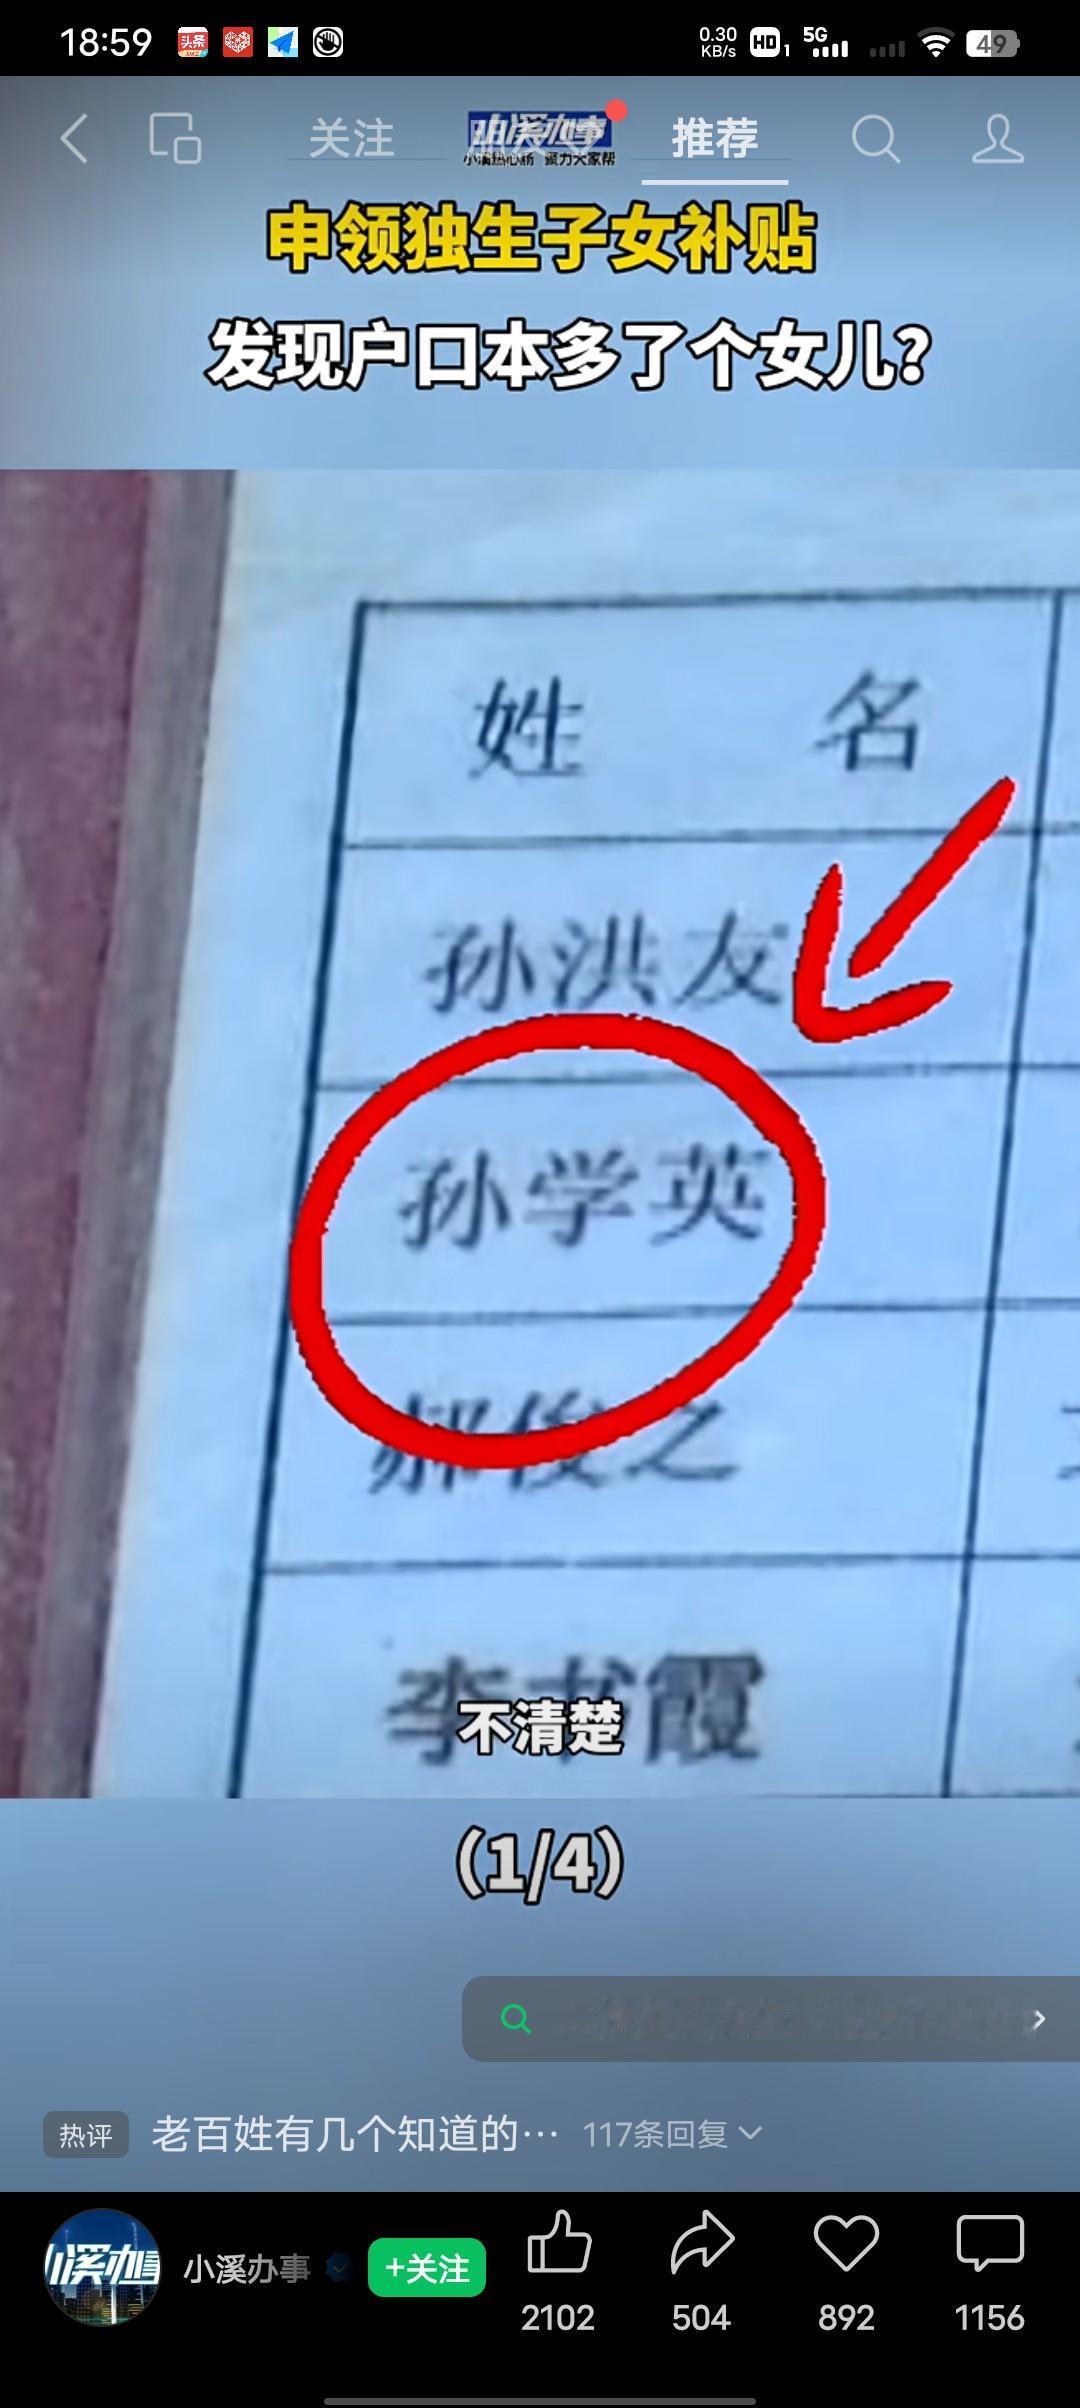 18:59
头条
0.30
KB/s
HD 1
5G
49
关注
推荐
小溪办事
申领独生子女补贴
发现户口本多了个女儿？
姓 名
孙洪友
孙学英
郝俊之
李书霞
不清楚
(1/4)
热评 老百姓有几个知道的… 117条回复
小溪办事
小溪办事
+关注
2102
504
892
1156